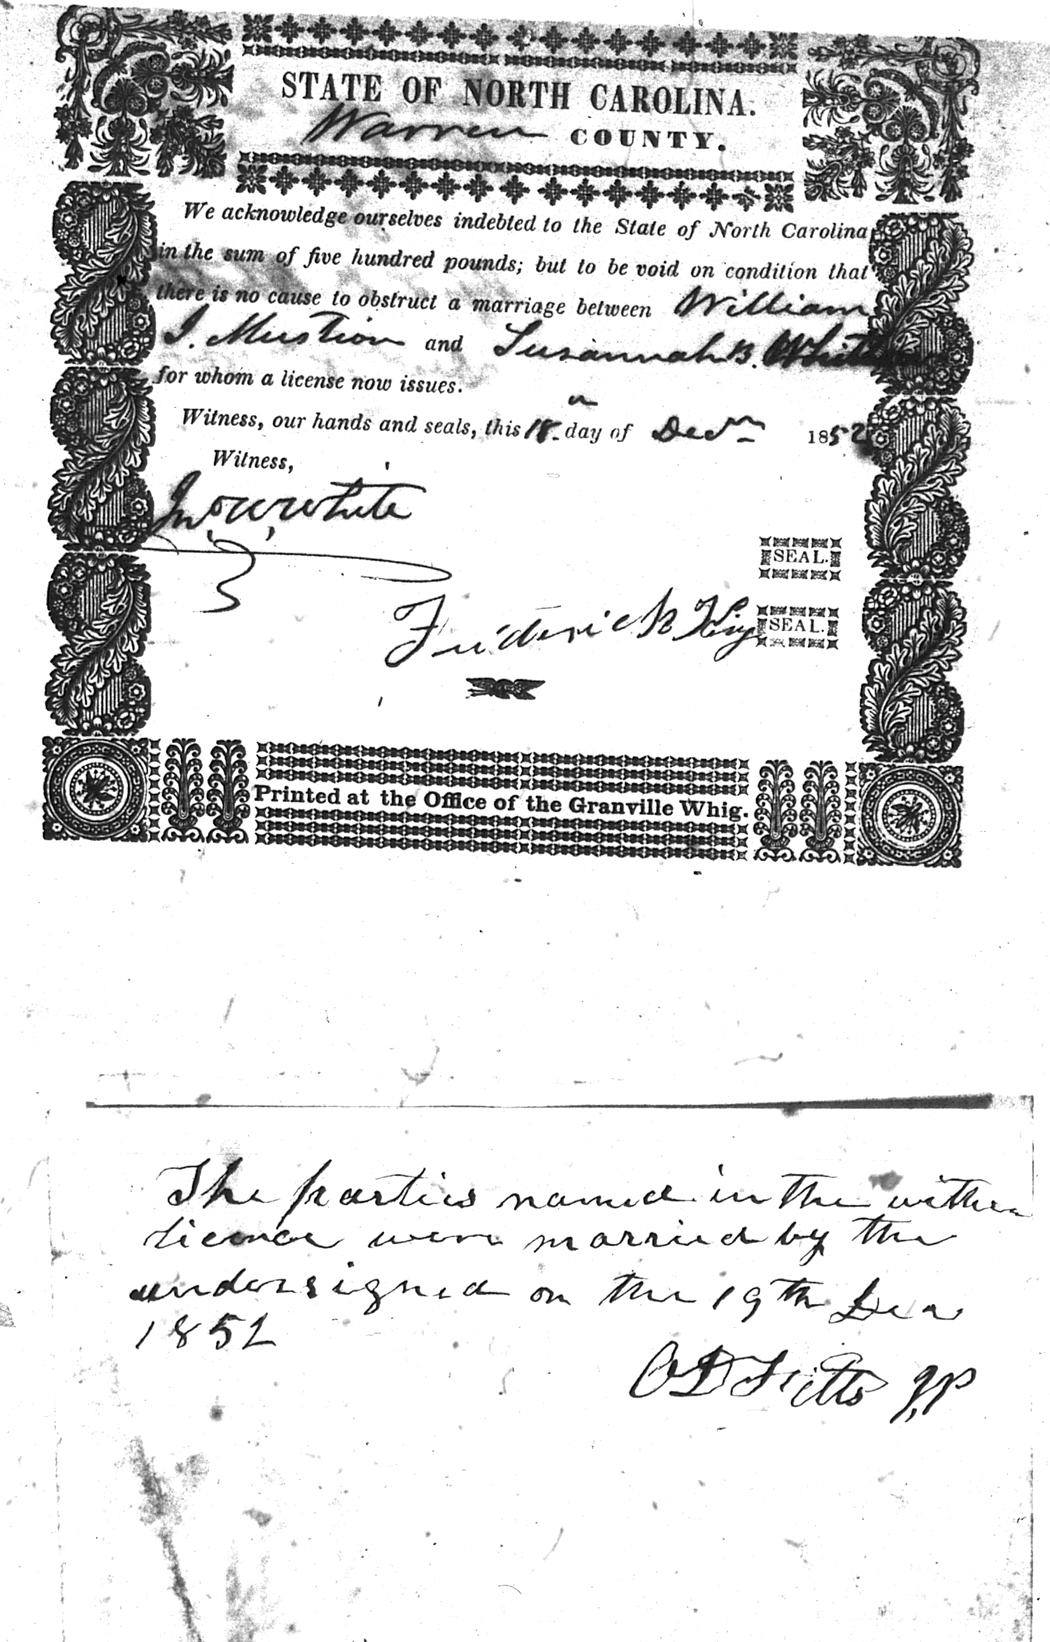 STATE OF NORTH CAROLINA.
Warren COUNTY.
We acknowledge ourselves indebted to the State of North Carolina
in the sum of five hundred pounds; but to be void on condition that
there is no cause to obstruct a marriage between William
J. Mustion and Susannah B. White
for whom a license now issues.
Witness, our hands and seals, this 18 day of Decr 1852
Witness,
Jno W White
SEAL.
Frederick King SEAL.
Printed at the Office of the Granville Whig.
The parties named in the within
licence were married by the
undersigned on the 19th Dec
1852
O D Fitts JP